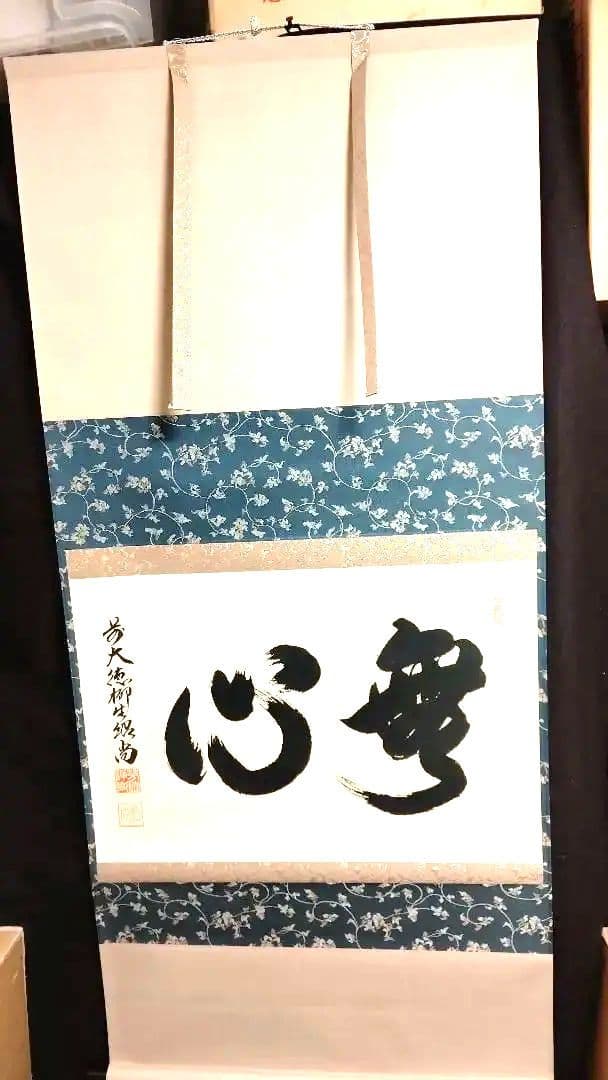 無心
前大徳柳生紹尚